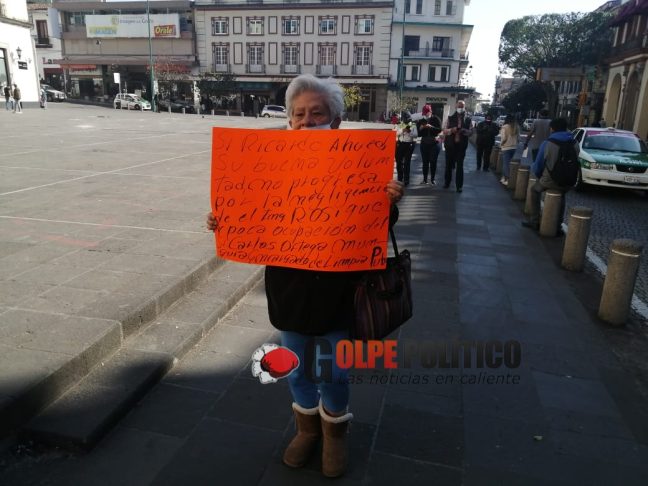 SI Ricardo Ahued
Su buena Volun
tad, no progresa
por la negligencia
de el Ing ROSique
poca ocupación del
Carlos Ortega
encargado de Limpia
GOLPEPOLÍTICO
Las noticias en caliente